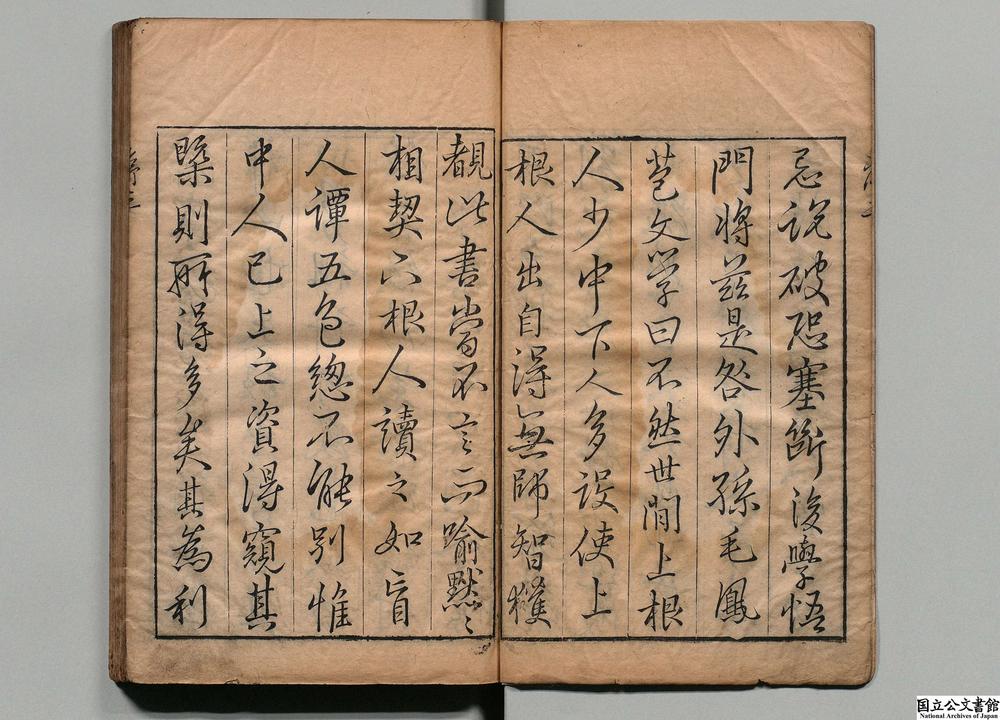 忌説破恐塞斷後學悟
門將茲是咎外孫毛鳳
苞文學曰不然世間上根
人少中下人多設使上
根人出自得無師智獲
覩此書當不言而喻默〻
相契六根人讀之如盲
人譚五色總不能別惟
中人已上之資得窺其
槩則所得多矣其為利
国立公文書館
National Archives of Japan